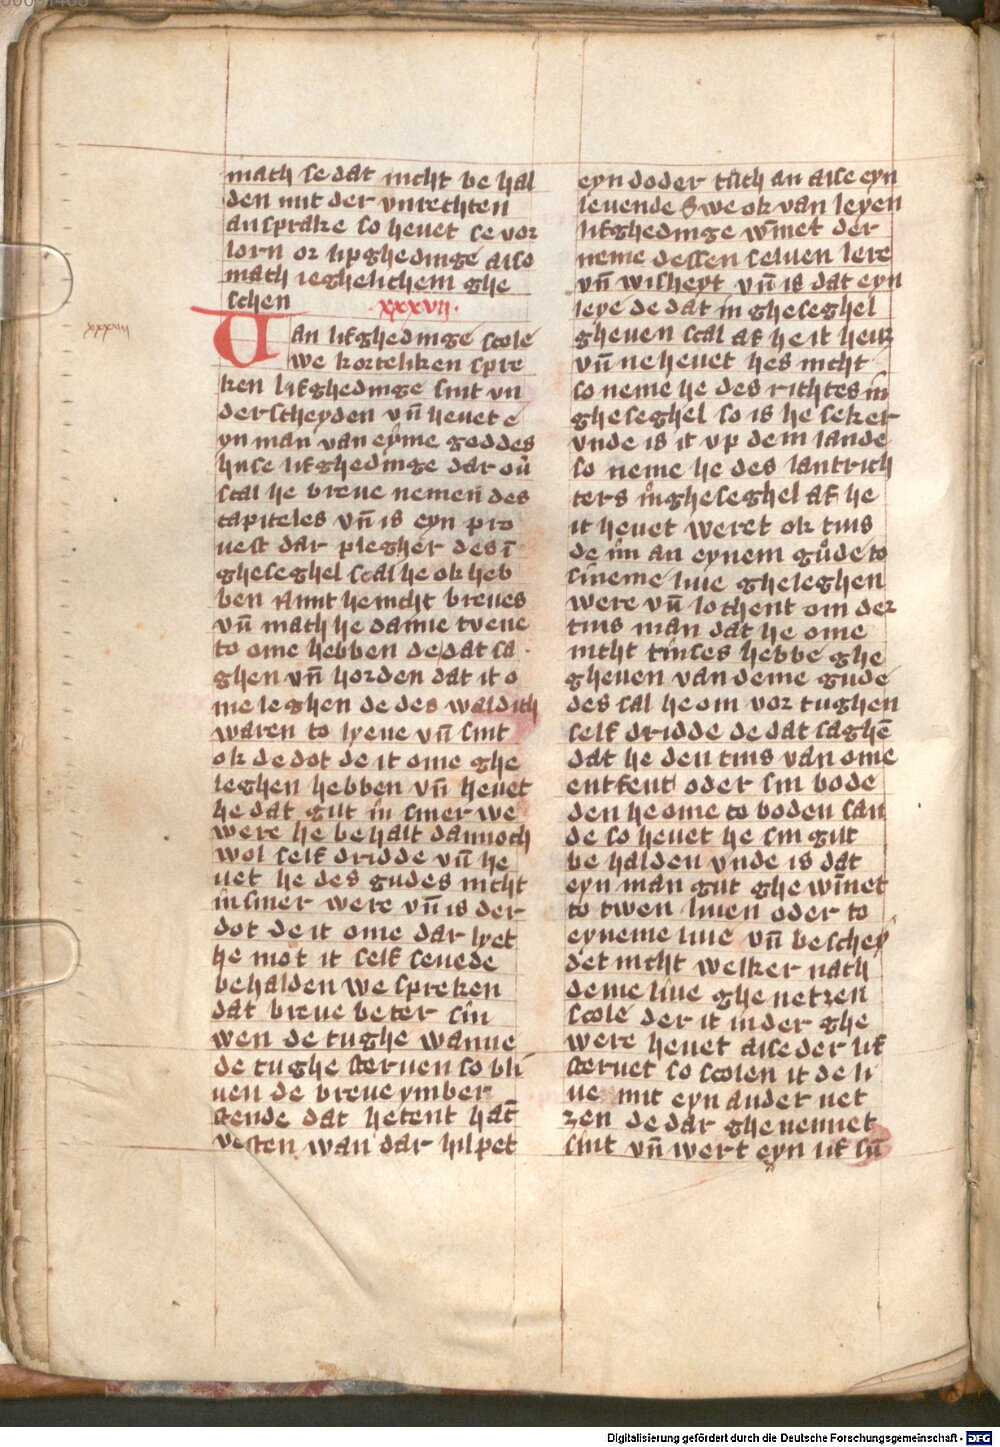 mach se dat nicht be hal
den mit der vnrechten
ansprake so heuet se vor
lorn or lipghedinge also
mach ieghelichem ghe
schen
xxxvij.
xxxviij
Uan lifghedinge scole
we kortelken spre
ken lifghedinge sint vn
derscheyden vn̄ heuet e
yn man van eyme goddes
huse lifghedinge dar ou̓
scal he breue nemen des
capiteles vn̄ is eyn pro
uest dar plegher des ī
gheseghel scal he ok heb
ben nimt he nicht breues
vn̄ mach he damie tvene
to ome hebben de dat sa
ghen vn̄ horden dat it o
me leghen de des waldich
waren to lyene vn̄ sint
ok de dot de it ome ghe
leghen hebben vn̄ heuet
he dat gut in siner we
were he behalt dannoch
wol self dridde vn̄ he
uet he des gudes nicht
in siner were vn̄ is der
dot de it ome dar lyet
he mot it self seuede
behalden we spreken
dat breue beter sin
wen de tughe wanne
de tughe steruen so bli
uen de breue ymber
stende dat hetent hat̄
vesten wan dar hilpet
eyn doder tuch an alse eyn
leuende Swe ok van leyen
lifghedinge wīnet der
neme dessen seluen lere
vn̄ wisheyt vn̄ is dat eyn
leye de dat in gheseghel
gheuen scal af he it heuz
vn̄ ne heuet hes nicht
so neme he des richtes in
gheseghel so is he seker
vnde is it vp dem lande
so neme he des lantrich
ters in gheseghel af he
it heuet weret ok tins
de im an eynem gude to
sineme liue gheleghen
were vn̄ lochent om der
tins man dat he ome
nicht tinses hebbe ghe
gheuen van deme gude
des sal he om vor tughen
self dridde de dat saghē
dat he den tins van ome
entfent oder sin bode
den he ome to boden san
de so heuet he sin gut
be halden vnde is dat
eyn man gut ghe wīnet
to twen liuen oder to
eyneme liue vn̄ beschey
det nicht welker nach
deme liue ghe netzen
scole der it in der ghe
were heuet alse der lif
steruet so scolen it de li
ue mit eyn ander net
zen de dar ghe nennet
sint vn̄ wert eyn lif sū